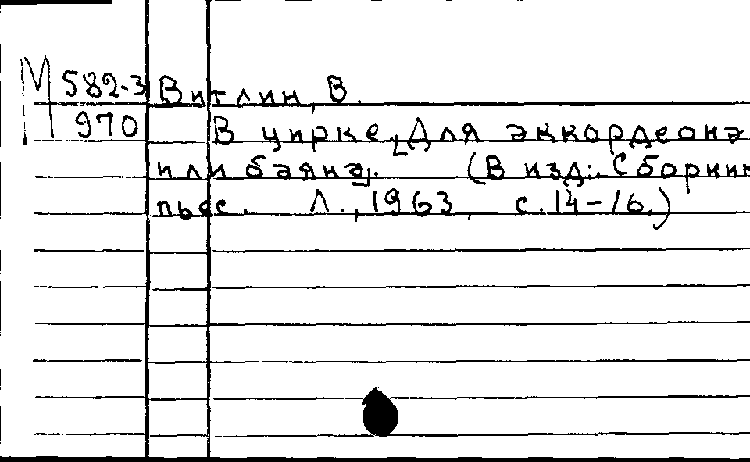 М 582-3 Витлин, В.
970 В цирке. [Для аккордеона
или баяна]. (В изд.: Сборник
пьес. Л., 1963, с. 14-16.)